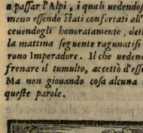 a passar l'Alpi, i quali uedendos
meno essendo stati confortati all'
ceuendogli honoratamente, det
la mattina seguente ragunatisi
rono Imperadore. Il che ueden
frenare il tumulto, accettò d'esse
bia non giouando cosa alcuna
queste parole.